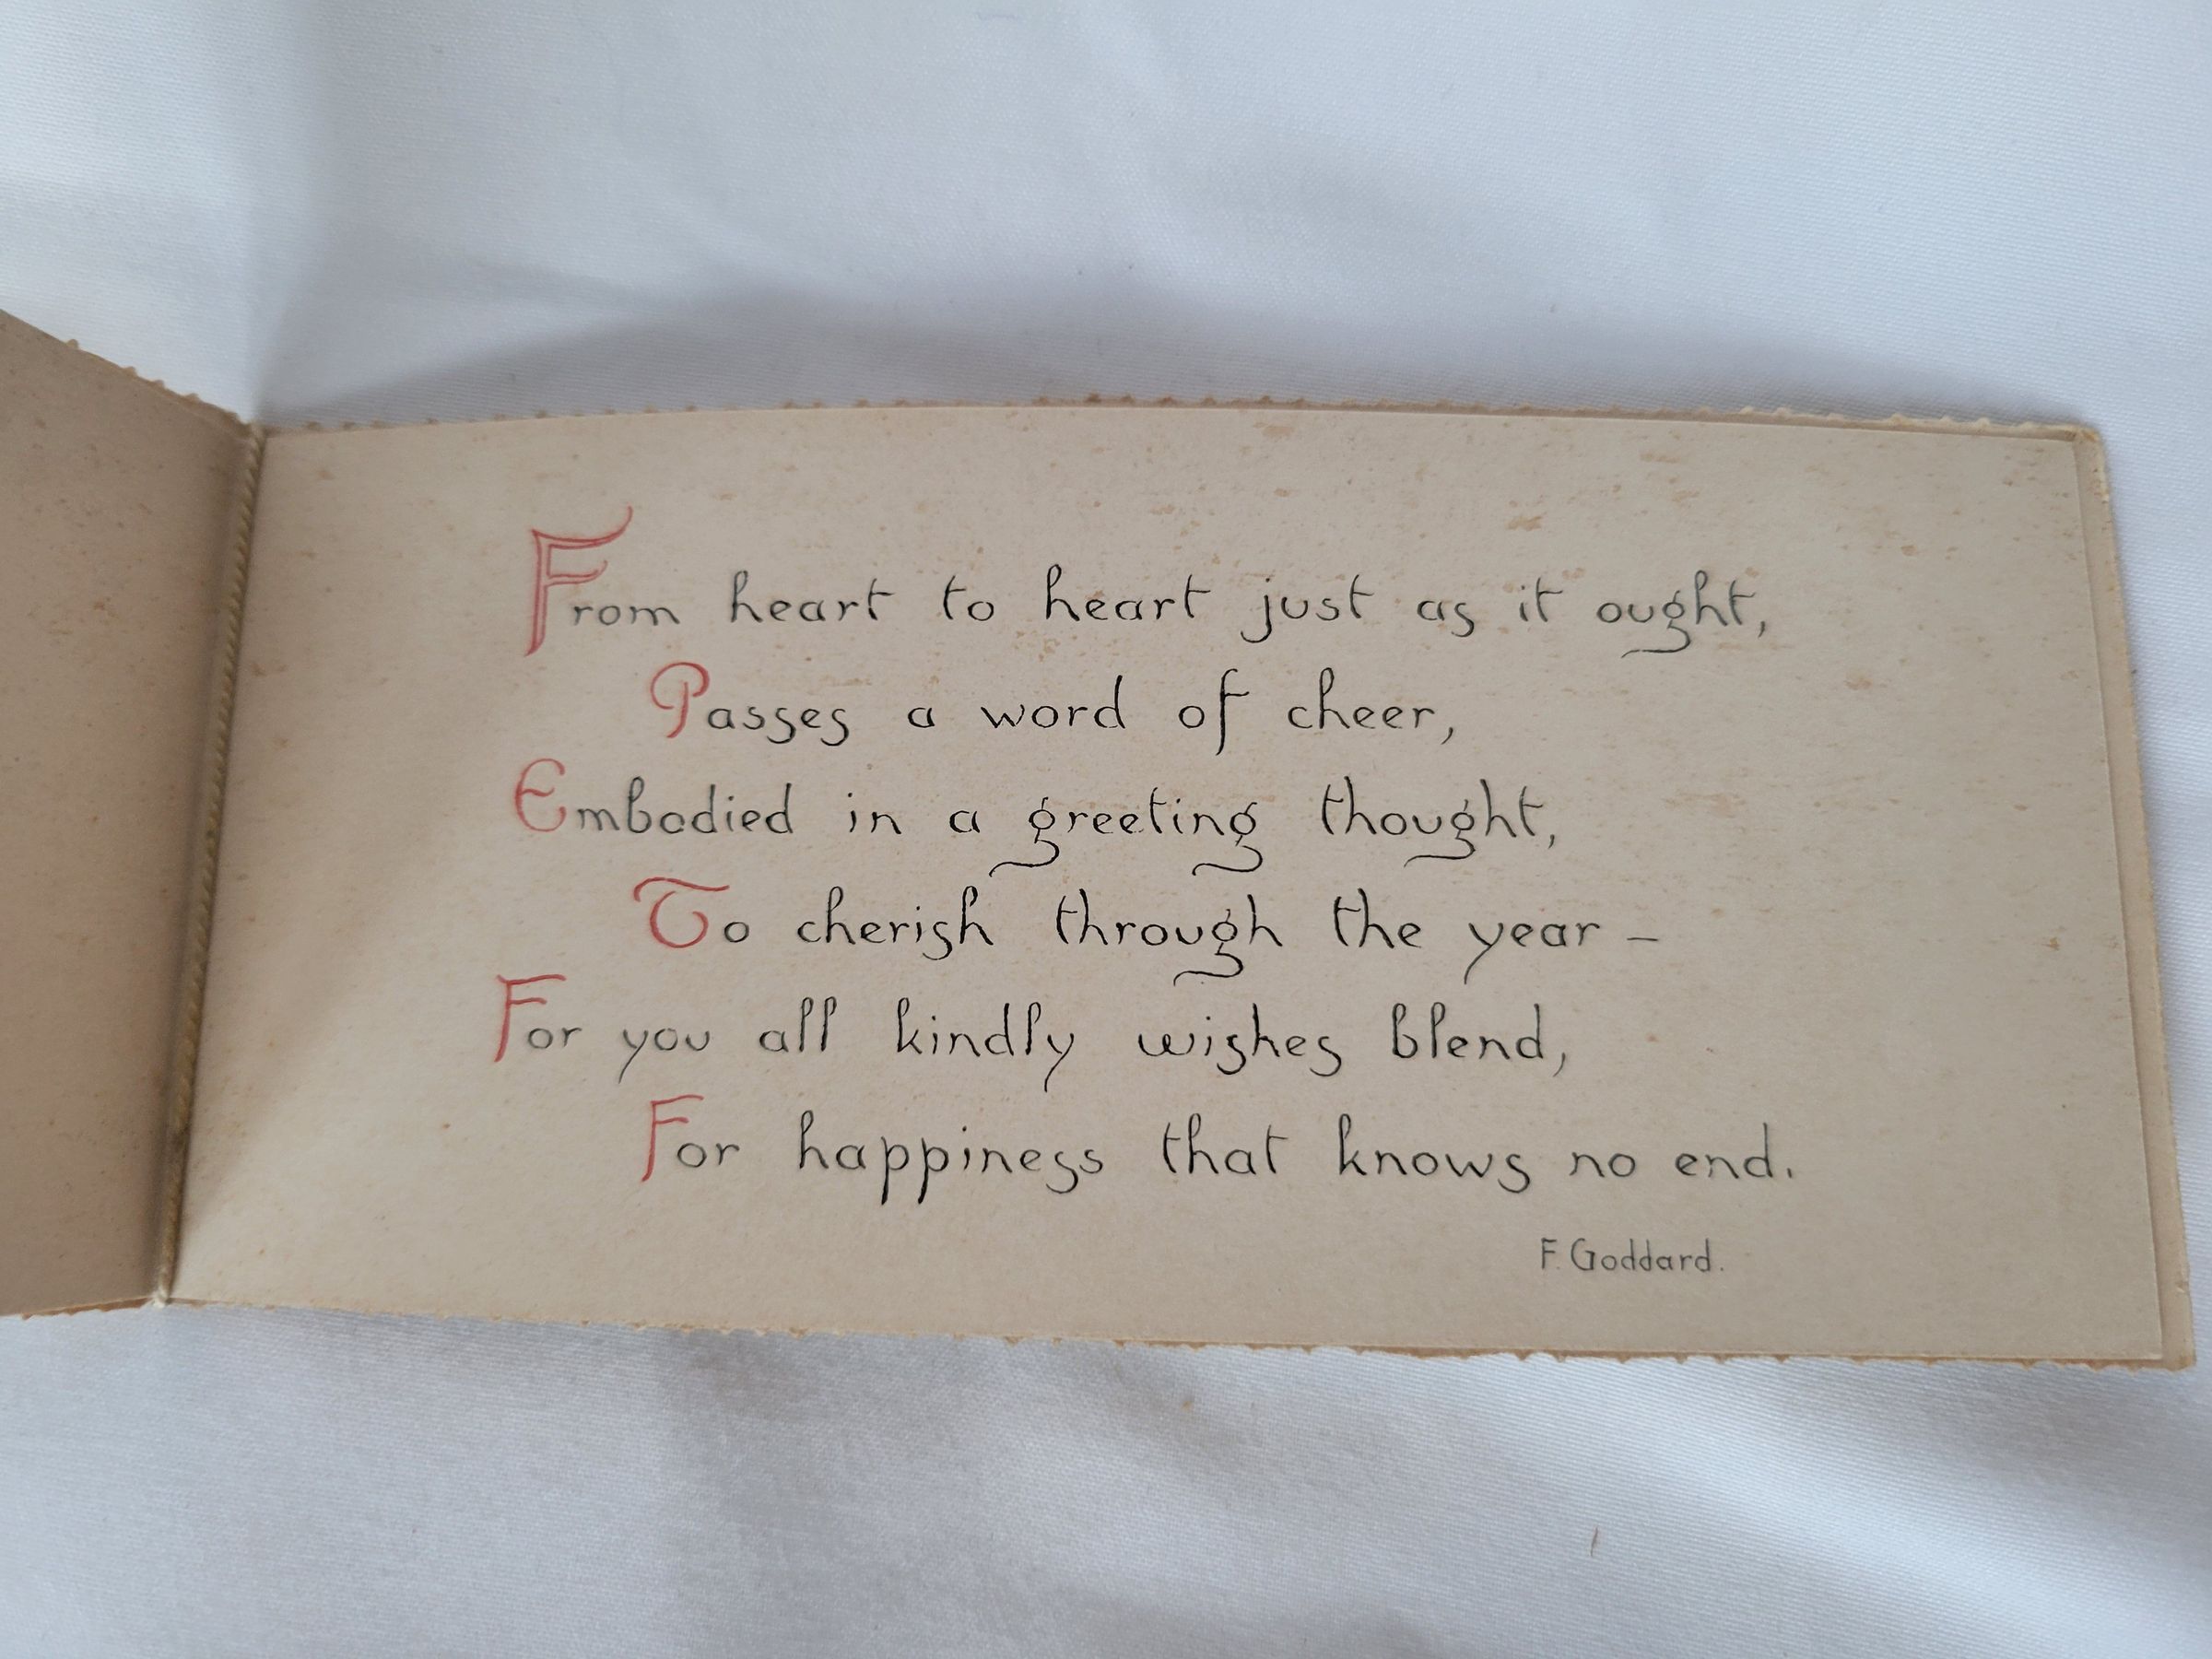 From heart to heart just as it ought,
Passes a word of cheer,
Embodied in a greeting thought,
To cherish through the year –
For you all kindly wishes blend,
For happiness that knows no end.
F. Goddard.